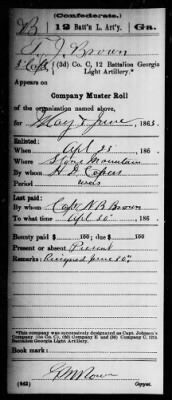 (Confederate.)
B 12 Batt'n L. Art'y. Ga.
T. J. Brown
(3d) Co. C, 12 Battalion Georgia
Light Artillery.*
Appears on
Company Muster Roll
of the organization named above,
for May & June, 1863.
Enlisted:
When Apl 23, 186
Where Stone Mountain
By whom H. D. Capers
Period war
Last paid:
By whom Capt N. B. Brown
To what time Apl 30, 186
Bounty paid $ 100; due $ 100
Present or absent Present
Remarks: Resigned June 30th
*This company was successively designated as Capt. Johnson's
Battalion Georgia Light Artillery.
Book mark:
(642) Copyist.